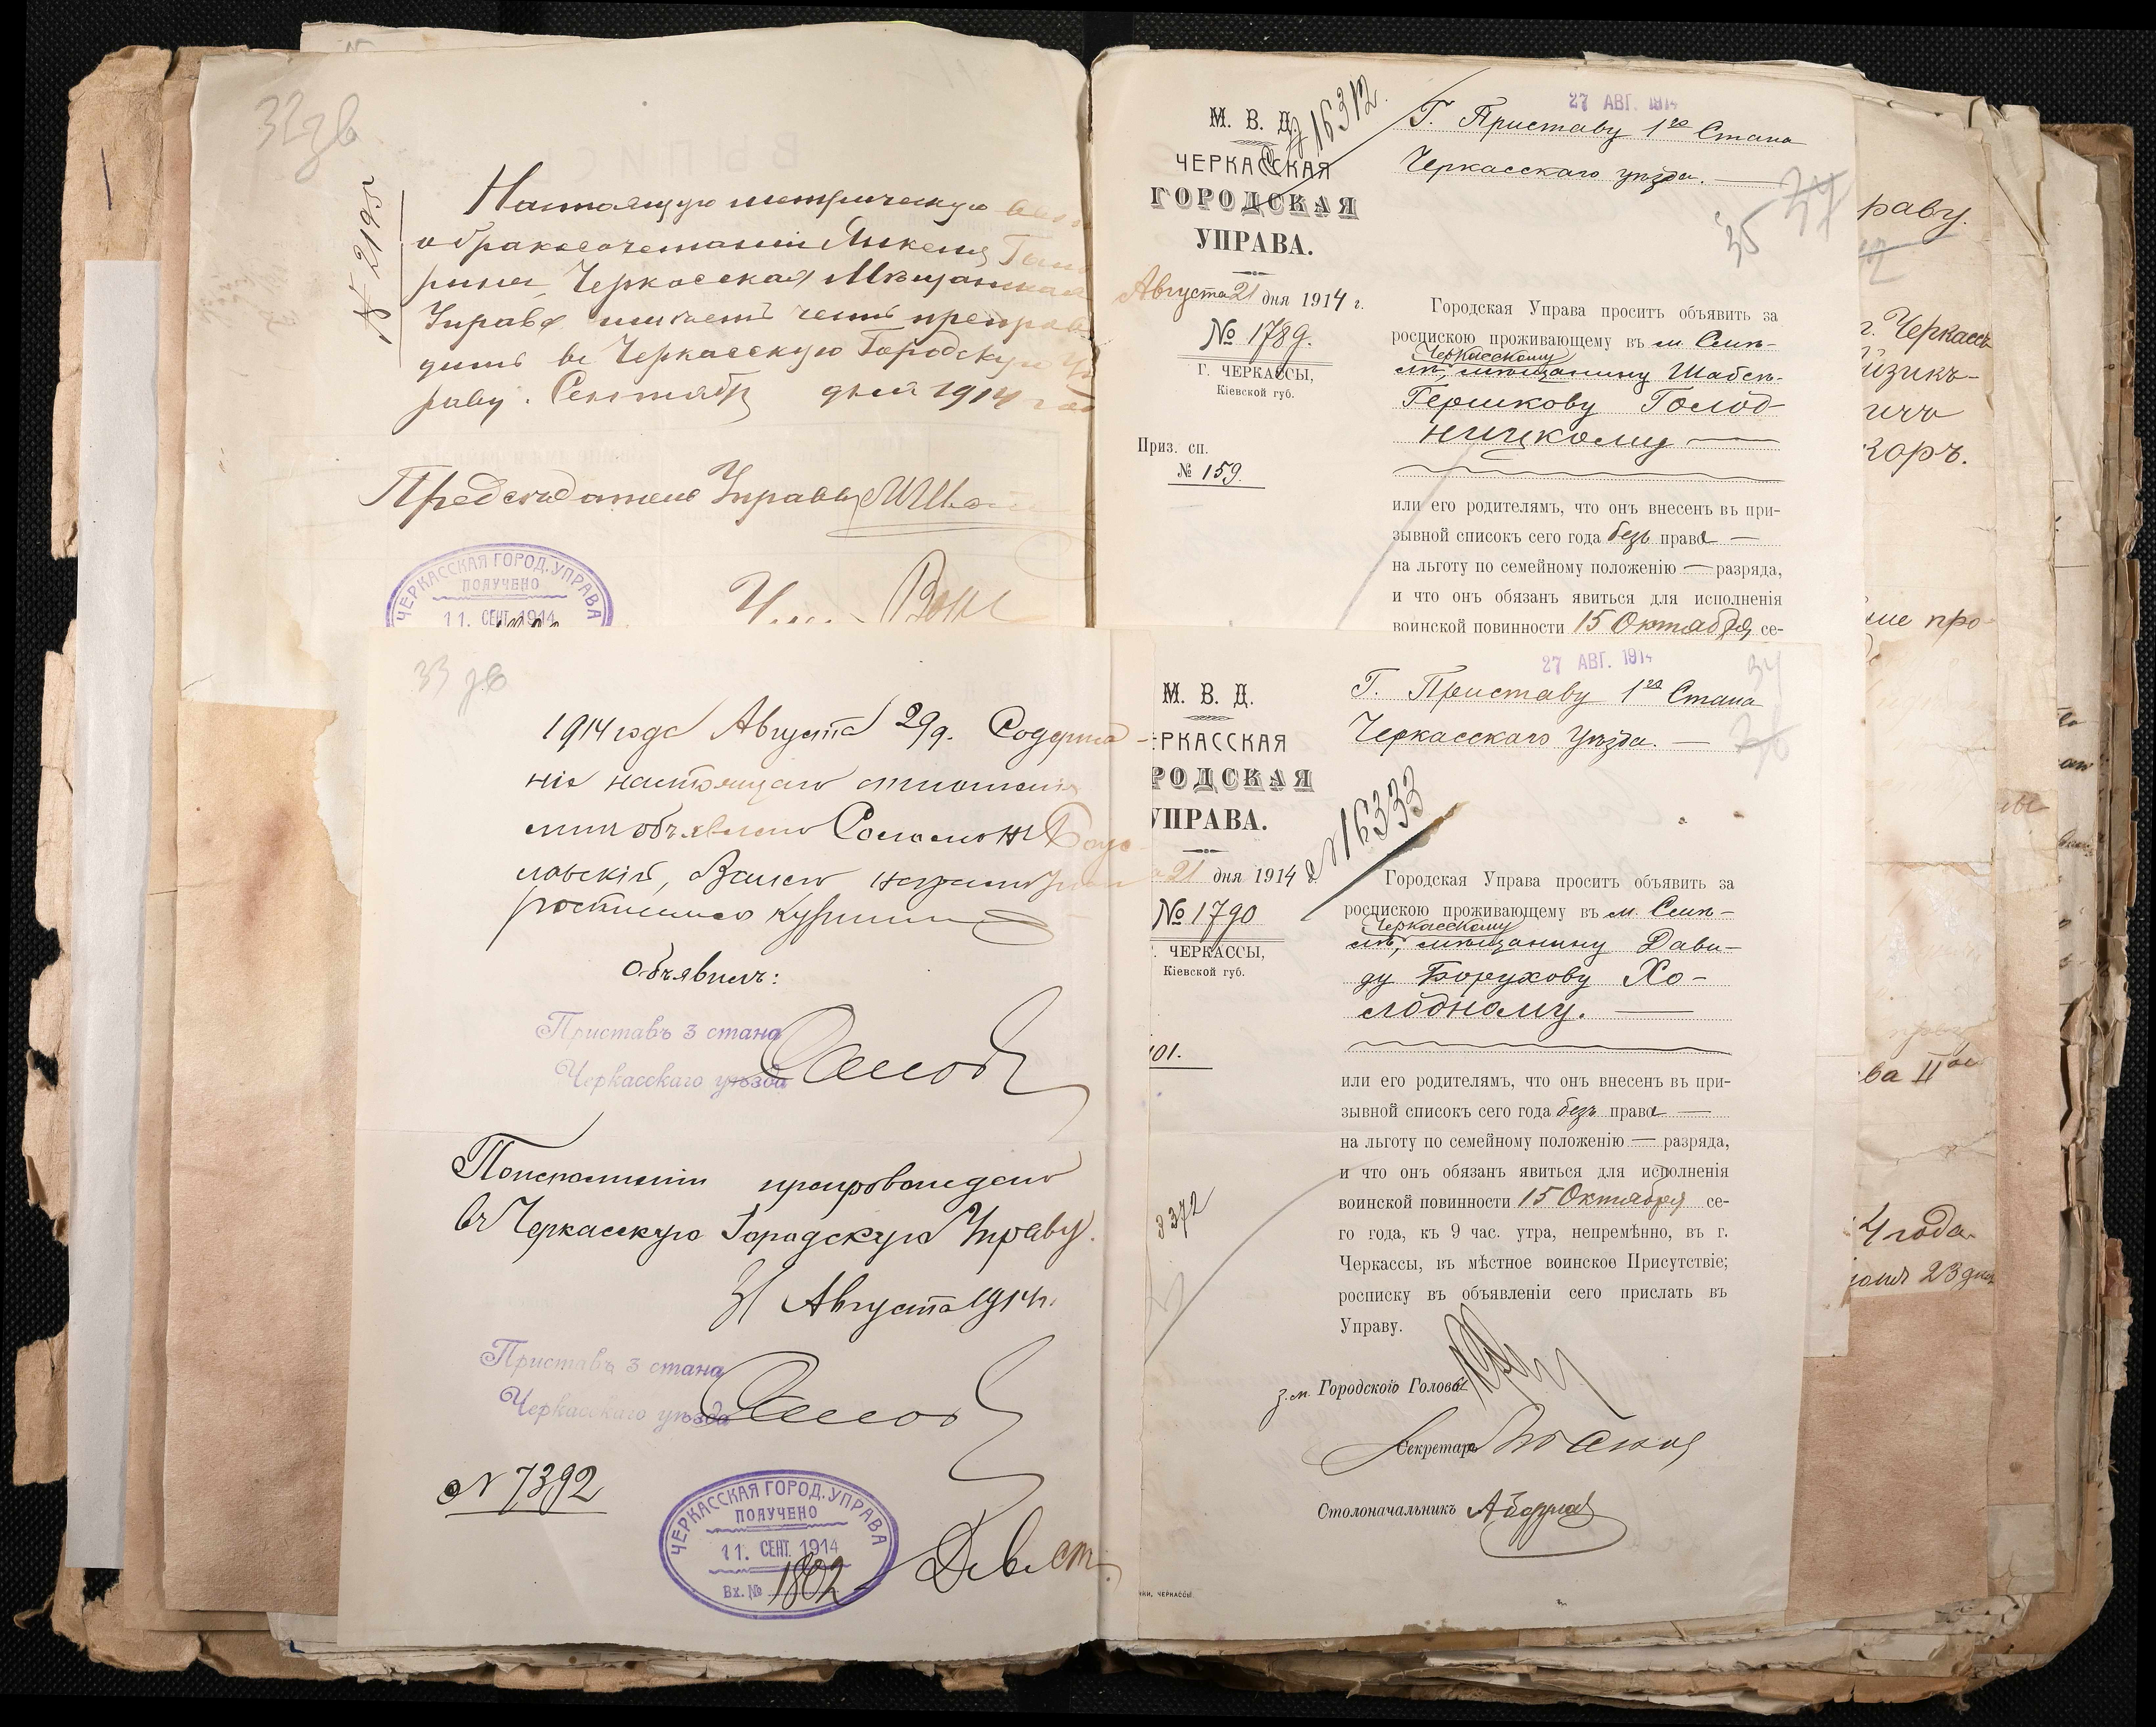 32 зв
№ 2195
Настоящую метрическую
о бракосочетании Янкеля
рина Черкасская Мѣщанская
Управа имѣетъ честь препрово
дить въ Черкасскую Городскую Уп
раву. Сентября дня 1914 год
Предсѣдатель Управы
ЧЕРКАССКАЯ ГОРОД. УПРАВА
ПОЛУЧЕНО
11. СЕНТ. 1914
М. В. Д.
ЧЕРКАССКАЯ
ГОРОДСКАЯ
УПРАВА.
Августа 21 дня 1914 г.
№ 1789.
Г. ЧЕРКАССЫ,
Кіевской губ.
Приз. сп.
№ 159.
16312.
27 АВГ. 1914
Г. Приставу 1го Стана
Черкасскаго уѣзда. —
37
35
Городская Управа проситъ объявить за
роспискою проживающему въ м. Смѣ-
Черкасскому
лѣ, мѣщанину Шабсѣ-
Гершкову Голод-
ницкому —
или его родителямъ, что онъ внесенъ въ при-
зывной списокъ сего года безъ права —
на льготу по семейному положенію — разряда,
и что онъ обязанъ явиться для исполненія
воинской повинности 15 Октября се-
33 зв
1914 года Августа 29 д. Содержа-
ніе настоящаго отношенія
мнѣ объявлено Соломонъ Богу-
славскій, За него неграмотнаго
росписался
Объявилъ:
Приставъ 3 стана
Черкасскаго уѣзда
По исполненіи препровождено
въ Черкасскую Городскую Управу.
31 Августа 1914 г.
Приставъ 3 стана
Черкасскаго уѣзда
№ 7392
ЧЕРКАССКАЯ ГОРОД. УПРАВА
ПОЛУЧЕНО
11. СЕНТ. 1914
Вх. № 1802
М. В. Д.
ЕРКАССКАЯ
РОДСКАЯ
УПРАВА.
21 дня 1914 г.
№ 1790
ЧЕРКАССЫ,
Кіевской губ.
101.
3372
№ 16333
27 АВГ. 1914
34
Г. Приставу 1го Стана
Черкасскаго Уѣзда. —
Городская Управа проситъ объявить за
роспискою проживающему въ м. Смѣ-
Черкасскому
лѣ, мѣщанину Дави-
ду Борухову Хо-
лодному. —
или его родителямъ, что онъ внесенъ въ при-
зывной списокъ сего года безъ права —
на льготу по семейному положенію — разряда,
и что онъ обязанъ явиться для исполненія
воинской повинности 15 Октября се-
го года, къ 9 час. утра, непремѣнно, въ г.
Черкассы, въ мѣстное воинское Присутствіе;
росписку въ объявленіи сего прислать въ
Управу.
з. м. Городского Головы
Секретарь
Столоначальникъ
ЧЕРКАССЫ
раву.
г. Черкассъ
изикъ-
ичъ
зоръ.
ва II
4 года
23 дня